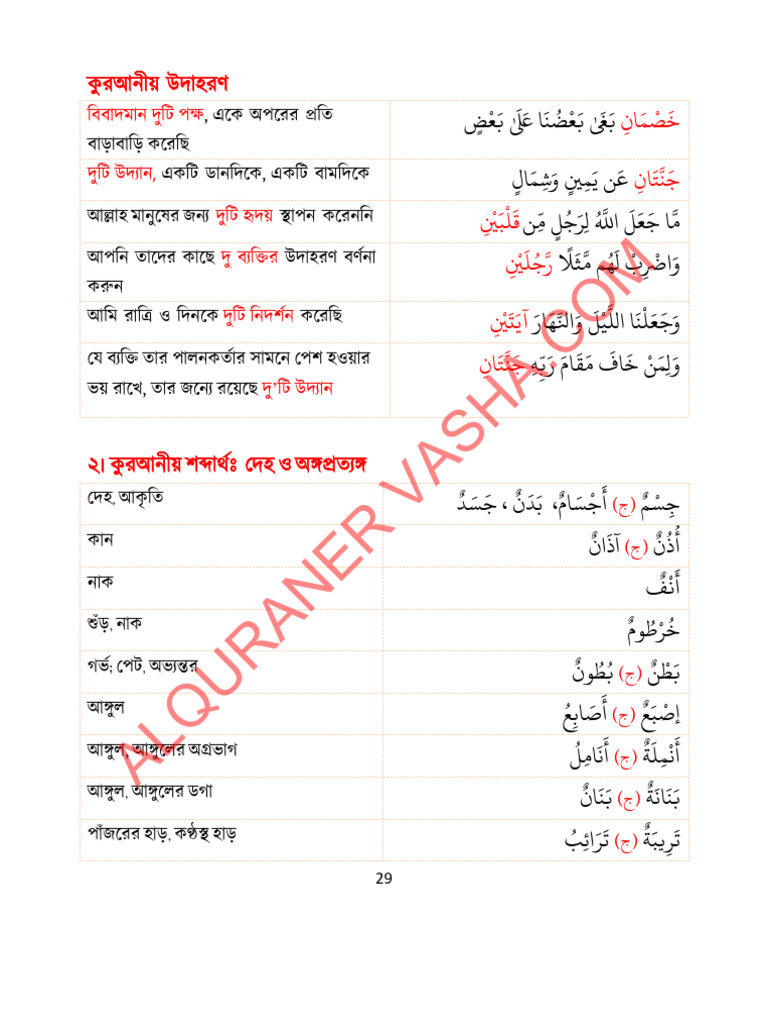 কুরআনীয় উদাহরণ
বিবাদমান দুটি পক্ষ, একে অপরের প্রতি
বাড়াবাড়ি করেছি
خَصْمَانِ بَغَىٰ بَعْضُنَا عَلَىٰ بَعْضٍ
দুটি উদ্যান, একটি ডানদিকে, একটি বামদিকে
جَنَّتَانِ عَن يَمِينٍ وَشِمَالٍ
আল্লাহ মানুষের জন্য দুটি হৃদয় স্থাপন করেননি
مَّا جَعَلَ اللَّهُ لِرَجُلٍ مِّن قَلْبَيْنِ
আপনি তাদের কাছে দু ব্যক্তির উদাহরণ বর্ণনা
করুন
وَاضْرِبْ لَهُم مَّثَلًا رَّجُلَيْنِ
আমি রাত্রি ও দিনকে দুটি নিদর্শন করেছি
وَجَعَلْنَا اللَّيْلَ وَالنَّهَارَ آيَتَيْنِ
যে ব্যক্তি তার পালনকর্তার সামনে পেশ হওয়ার
ভয় রাখে, তার জন্যে রয়েছে দু’টি উদ্যান
وَلِمَنْ خَافَ مَقَامَ رَبِّهِ جَنَّتَانِ
২। কুরআনীয় শব্দার্থঃ দেহ ও অঙ্গপ্রত্যঙ্গ
দেহ, আকৃতি
جِسْمٌ (ج) أَجْسَامٌ، بَدَنٌ ، جَسَدٌ
কান
أُذُنٌ (ج) آذَانٌ
নাক
أَنْفٌ
শুঁড়, নাক
خُرْطُومٌ
গর্ভ; পেট, অভ্যন্তর
بَطْنٌ (ج) بُطُونٌ
আঙ্গুল
إصْبَعٌ (ج) أَصَابِعُ
আঙ্গুল, আঙ্গুলের অগ্রভাগ
أَنْمِلَةٌ (ج) أَنَامِلُ
আঙ্গুল, আঙ্গুলের ডগা
بَنَانَةٌ (ج) بَنَانٌ
পাঁজরের হাড়, কণ্ঠস্থ হাড়
تَرِيبَةٌ (ج) تَرَائِبُ
29
ALQURANER VASHA.COM